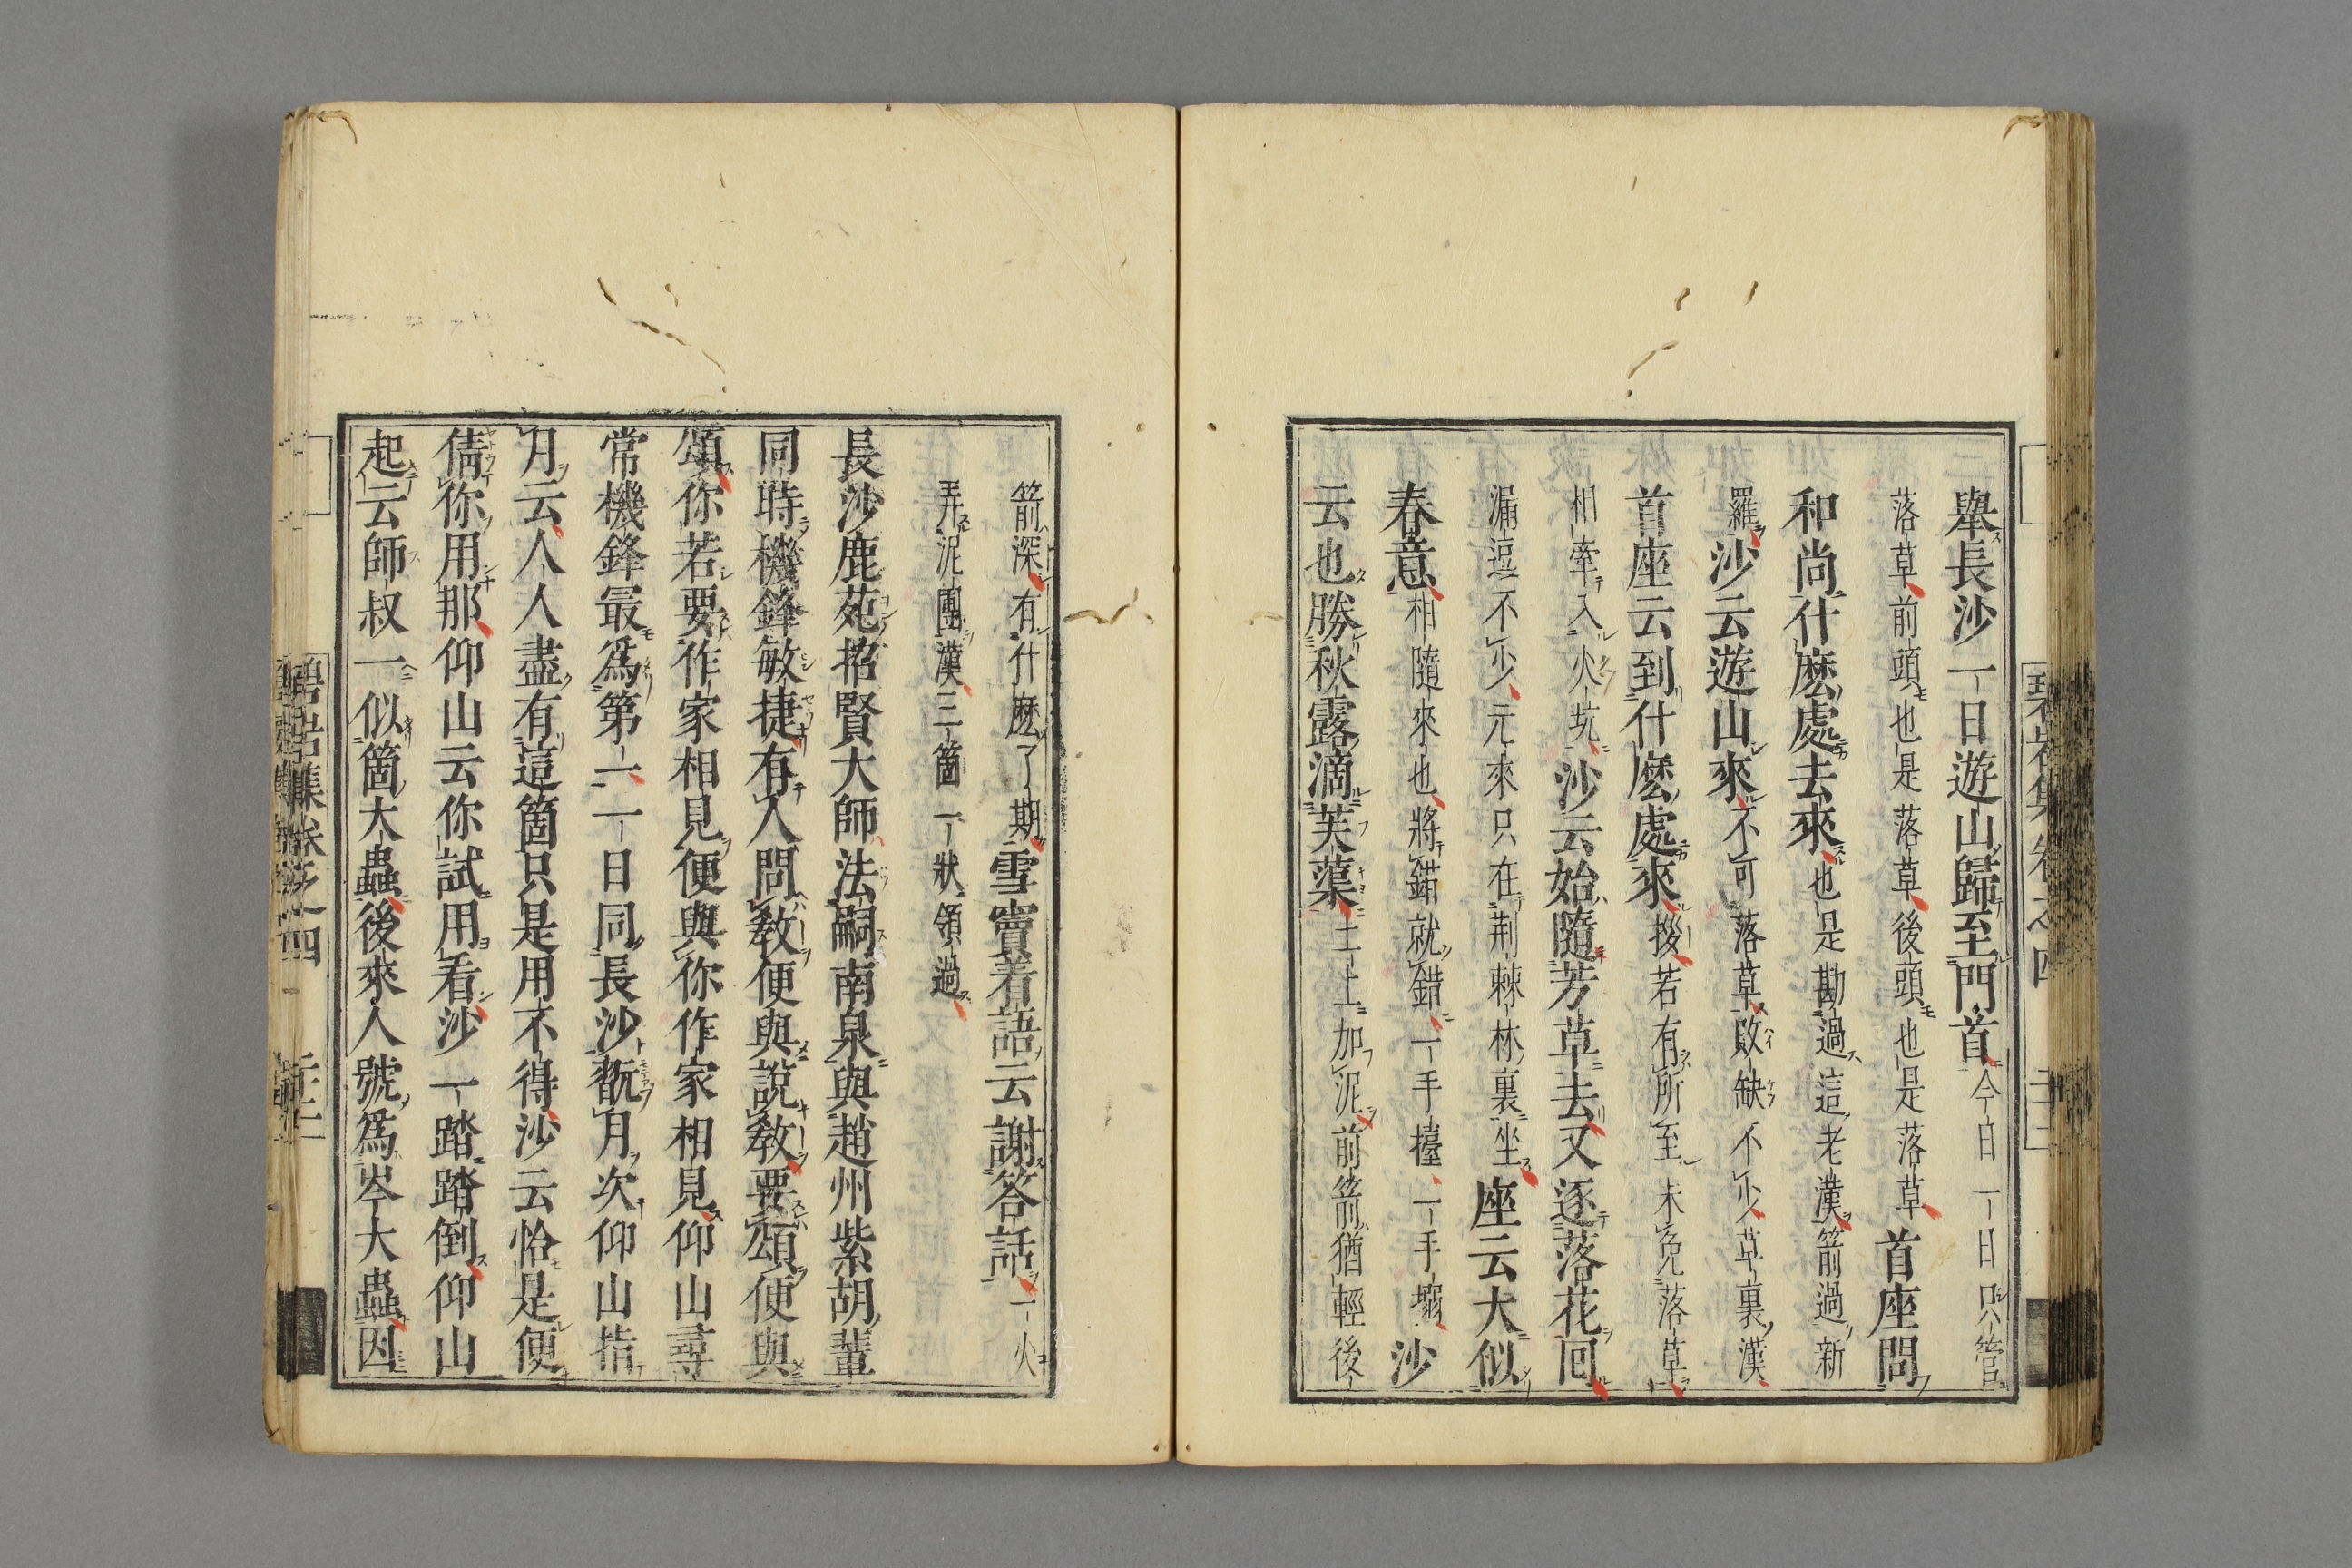 舉長沙一日遊山歸至門首今日一日只管
落草前頭也是落草後頭也是落草首座問
和尚什麼處去來也是勘過這老漢箭過新
羅沙云遊山來不可落草敗缺不少草裏漢
首座云到什麼處來拶若有所至未免落草
相牽入火坑沙云始隨芳草去又逐落花回
漏逗不少元來只在荊棘林裏坐座云大似
春意相隨來也將錯就錯一手擡一手搦沙
云也勝秋露滴芙蕖土上加泥前箭猶輕後
箭深有什麼了期雪竇着語云謝答話一火
弄泥團漢三箇一狀領過
長沙鹿苑招賢大師法嗣南泉與趙州紫胡輩
同時機鋒敏捷有人問教便與說教要頌便與
頌你若要作家相見便與你作家相見仰山尋
常機鋒最爲第一一日同長沙翫月次仰山指
月云人人盡有這箇只是用不得沙云恰是便
倩你用那仰山云你試用看沙一踏踏倒仰山
起云師叔一似箇大蟲後來人號爲岑大蟲因
碧岩集卷之四